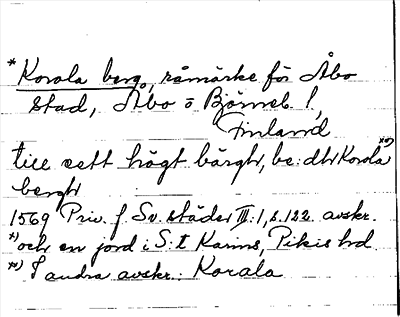 * Korala berg, råmärke för Åbo
stad, Åbo o Björneb. l,
Finland
till ett högt bärgh, be:dh Korala **)
bergh
1569 Priv. f. Sv. städer III:1, s. 122 avskr.
*) och en jord i S:t Karins, Pikis hd
**) I andra avskr.: Korala